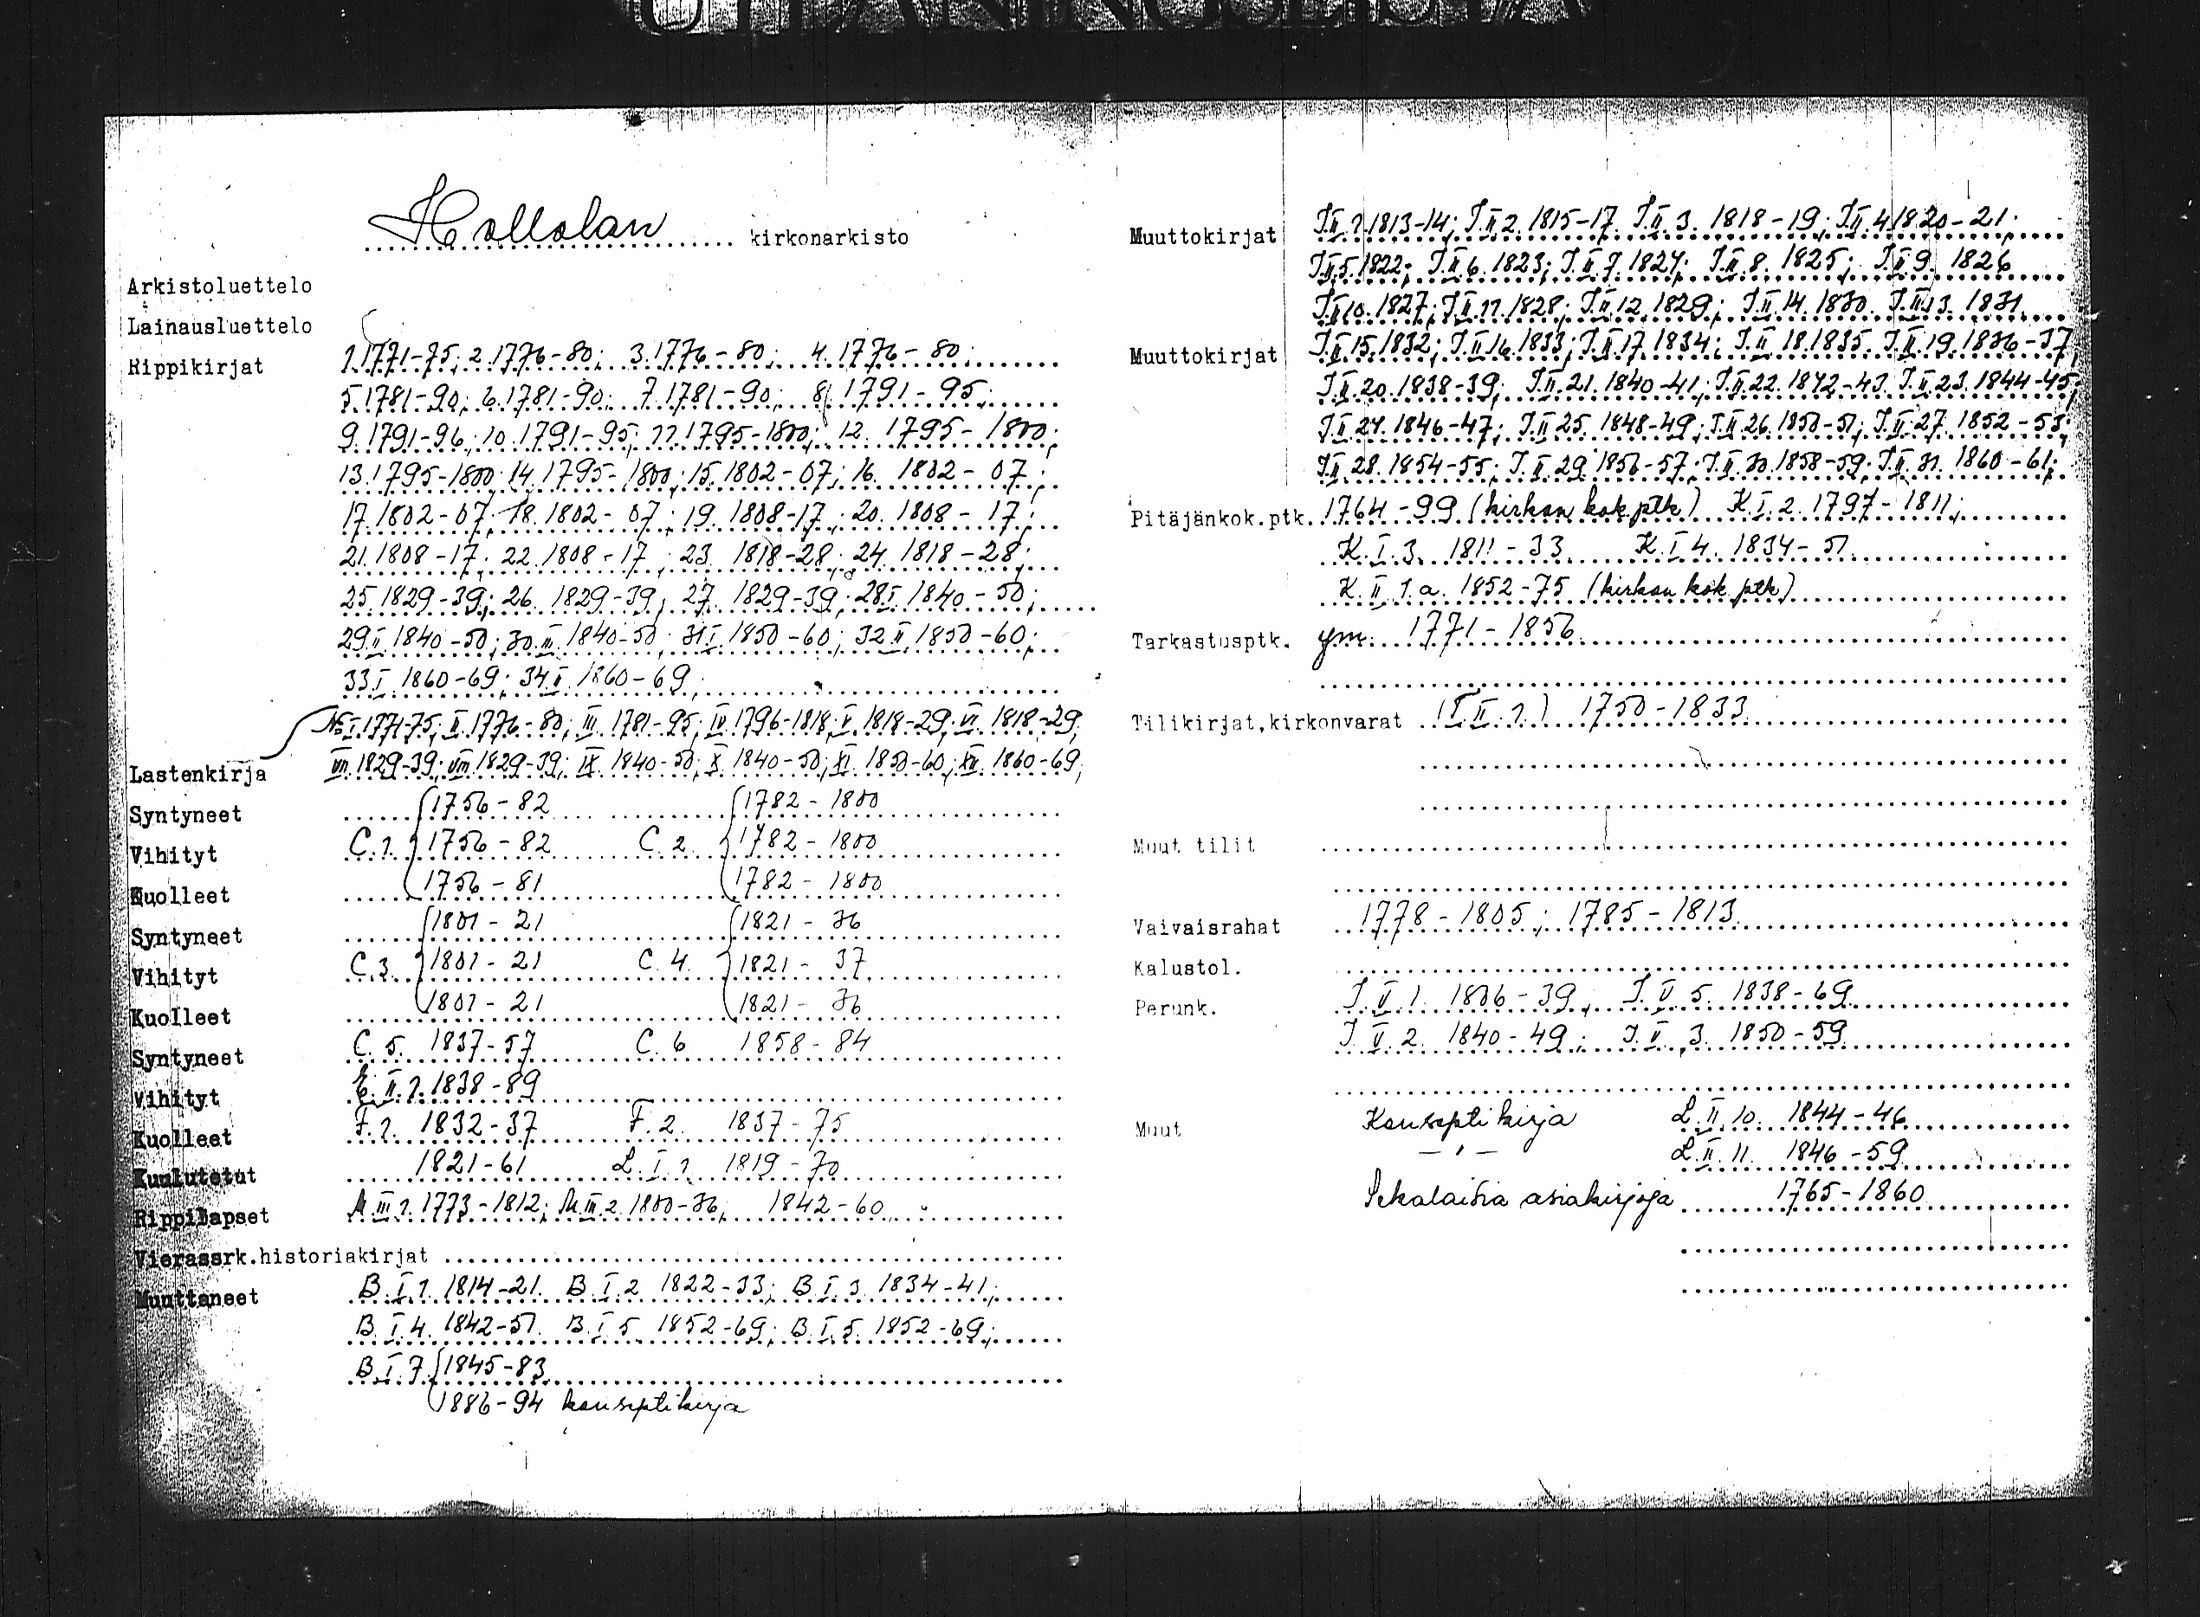 Hollolan kirkonarkisto
Arkistoluettelo
Lainausluettelo
Rippikirjat 1.1771-75; 2.1776-80; 3.1776-80; 4.1776-80;
5.1781-90; 6.1781-90; 7.1781-90; 8. 1791-95;
9.1791-96; 10.1791-95; 11.1795-1800; 12. 1795-1800;
13.1795-1800; 14.1795-1800; 15.1802-07; 16. 1802-07;
17.1802-07; 18.1802-07; 19.1808-17; 20. 1808-17;
21.1808-17; 22.1808-17; 23. 1818-28; 24. 1818-28;
25.1829-39; 26. 1829-39; 27. 1829-39; 28 I. 1840-50;
29 II. 1840-50; 30 III. 1840-50; 31 I. 1850-60; 32 II. 1850-60;
33 I. 1860-69; 34 II. 1860-69;
No I. 1771-75; II. 1776-80; III. 1781-95; IV. 1796-1818; V. 1818-29; VI. 1818-29;
Lastenkirja VII. 1829-39; VIII. 1829-39; IX. 1840-50; X. 1840-50; XI. 1850-60; XII. 1860-69;
Syntyneet 1756-82 1782-1800
Vihityt C.1. 1756-82 C.2. 1782-1800
Kuolleet 1756-81 1782-1800
Syntyneet 1801-21 1821-36
Vihityt C.3. 1801-21 C.4. 1821-37
Kuolleet 1801-21 1821-36
Syntyneet C.5. 1837-57 C.6 1858-84
Vihityt E.II.1. 1838-89
Kuolleet F.1. 1832-37 F.2. 1837-75
Kuulutetut 1821-61 L.I.1. 1819-70
Rippilapset M.III.1. 1773-1812; M.III.2. 1800-36; 1842-60
Vierassrk.historiakirjat
Muuttaneet B.I.1. 1814-21. B.I.2 1822-33; B.I.3. 1834-41;
B.I.4. 1842-51. B.I.5 1852-69; B.I.5. 1852-69;
B.I.7. 1845-83
1886-94 konseptikirja
Muuttokirjat J.II.1.1813-14; J.II.2.1815-17. J.II.3. 1818-19; J.II.4.1820-21;
J.II.5.1822; J.II.6.1823; J.II.7.1824; J.II.8. 1825; J.II.9. 1826
J.II.10.1827; J.II.11.1828; J.II.12.1829; J.II.14.1830. J.II.13. 1831.
Muuttokirjat J.II.15.1832; J.II.16.1833; J.II.17.1834; J.II.18.1835. J.II.19.1836-37,
J.II.20.1838-39; J.II.21.1840-41; J.II.22.1842-43. J.II.23.1844-45;
J.II.24.1846-47; J.II.25.1848-49; J.II.26.1850-51; J.II.27.1852-53;
J.II.28.1854-55; J.II.29.1856-57; J.II.30.1858-59; J.II.31. 1860-61;
Pitäjänkok.ptk. 1764-99 (kirkon kok.ptk) K.I.2. 1797-1811;
K.I.3. 1811-33 K.I.4. 1834-51.
K.II.1.a. 1852-75 (kirkon kok.ptk)
Tarkastusptk. ym. 1771-1856
Tilikirjat,kirkonvarat (T.II.1.) 1750-1833
Muut tilit
Vaivaisrahat 1778-1805; 1785-1813.
Kalustol.
Perunk. J.V.1. 1806-39; J.V.5. 1838-69
J.V.2. 1840-49; J.V.3. 1850-59
Muut Konseptikirja L.II.10. 1844-46
— " — L.II.11. 1846-59
Sekalaisia asiakirjoja 1765-1860